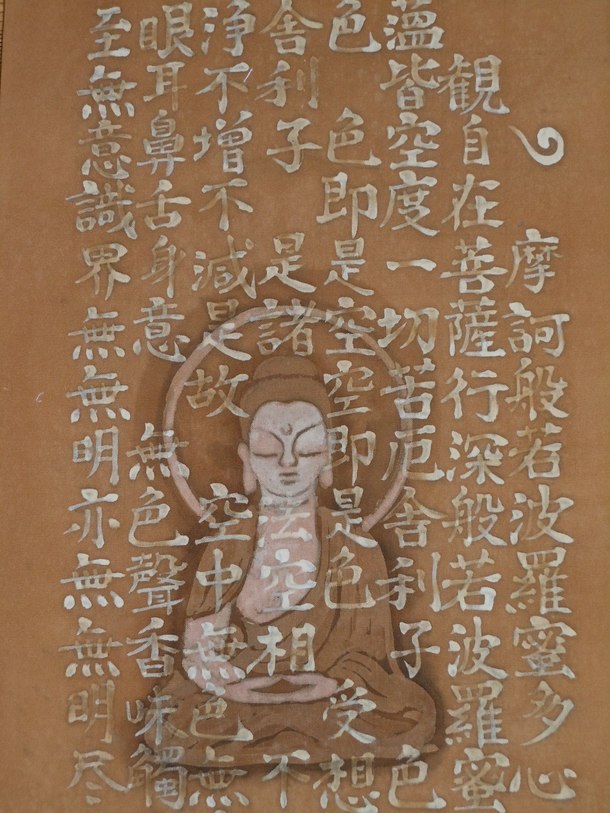 摩訶般若波羅蜜多心
観自在菩薩行深般若波羅蜜
蘊皆空度一切苦厄舎利子 色
色 色即是空空即是色 受想
舎利子 是諸法空相 不
浄不増不減是故 空中無色無
眼耳鼻舌身意 無色聲香味觸
至無意識界無無明亦無無明尽